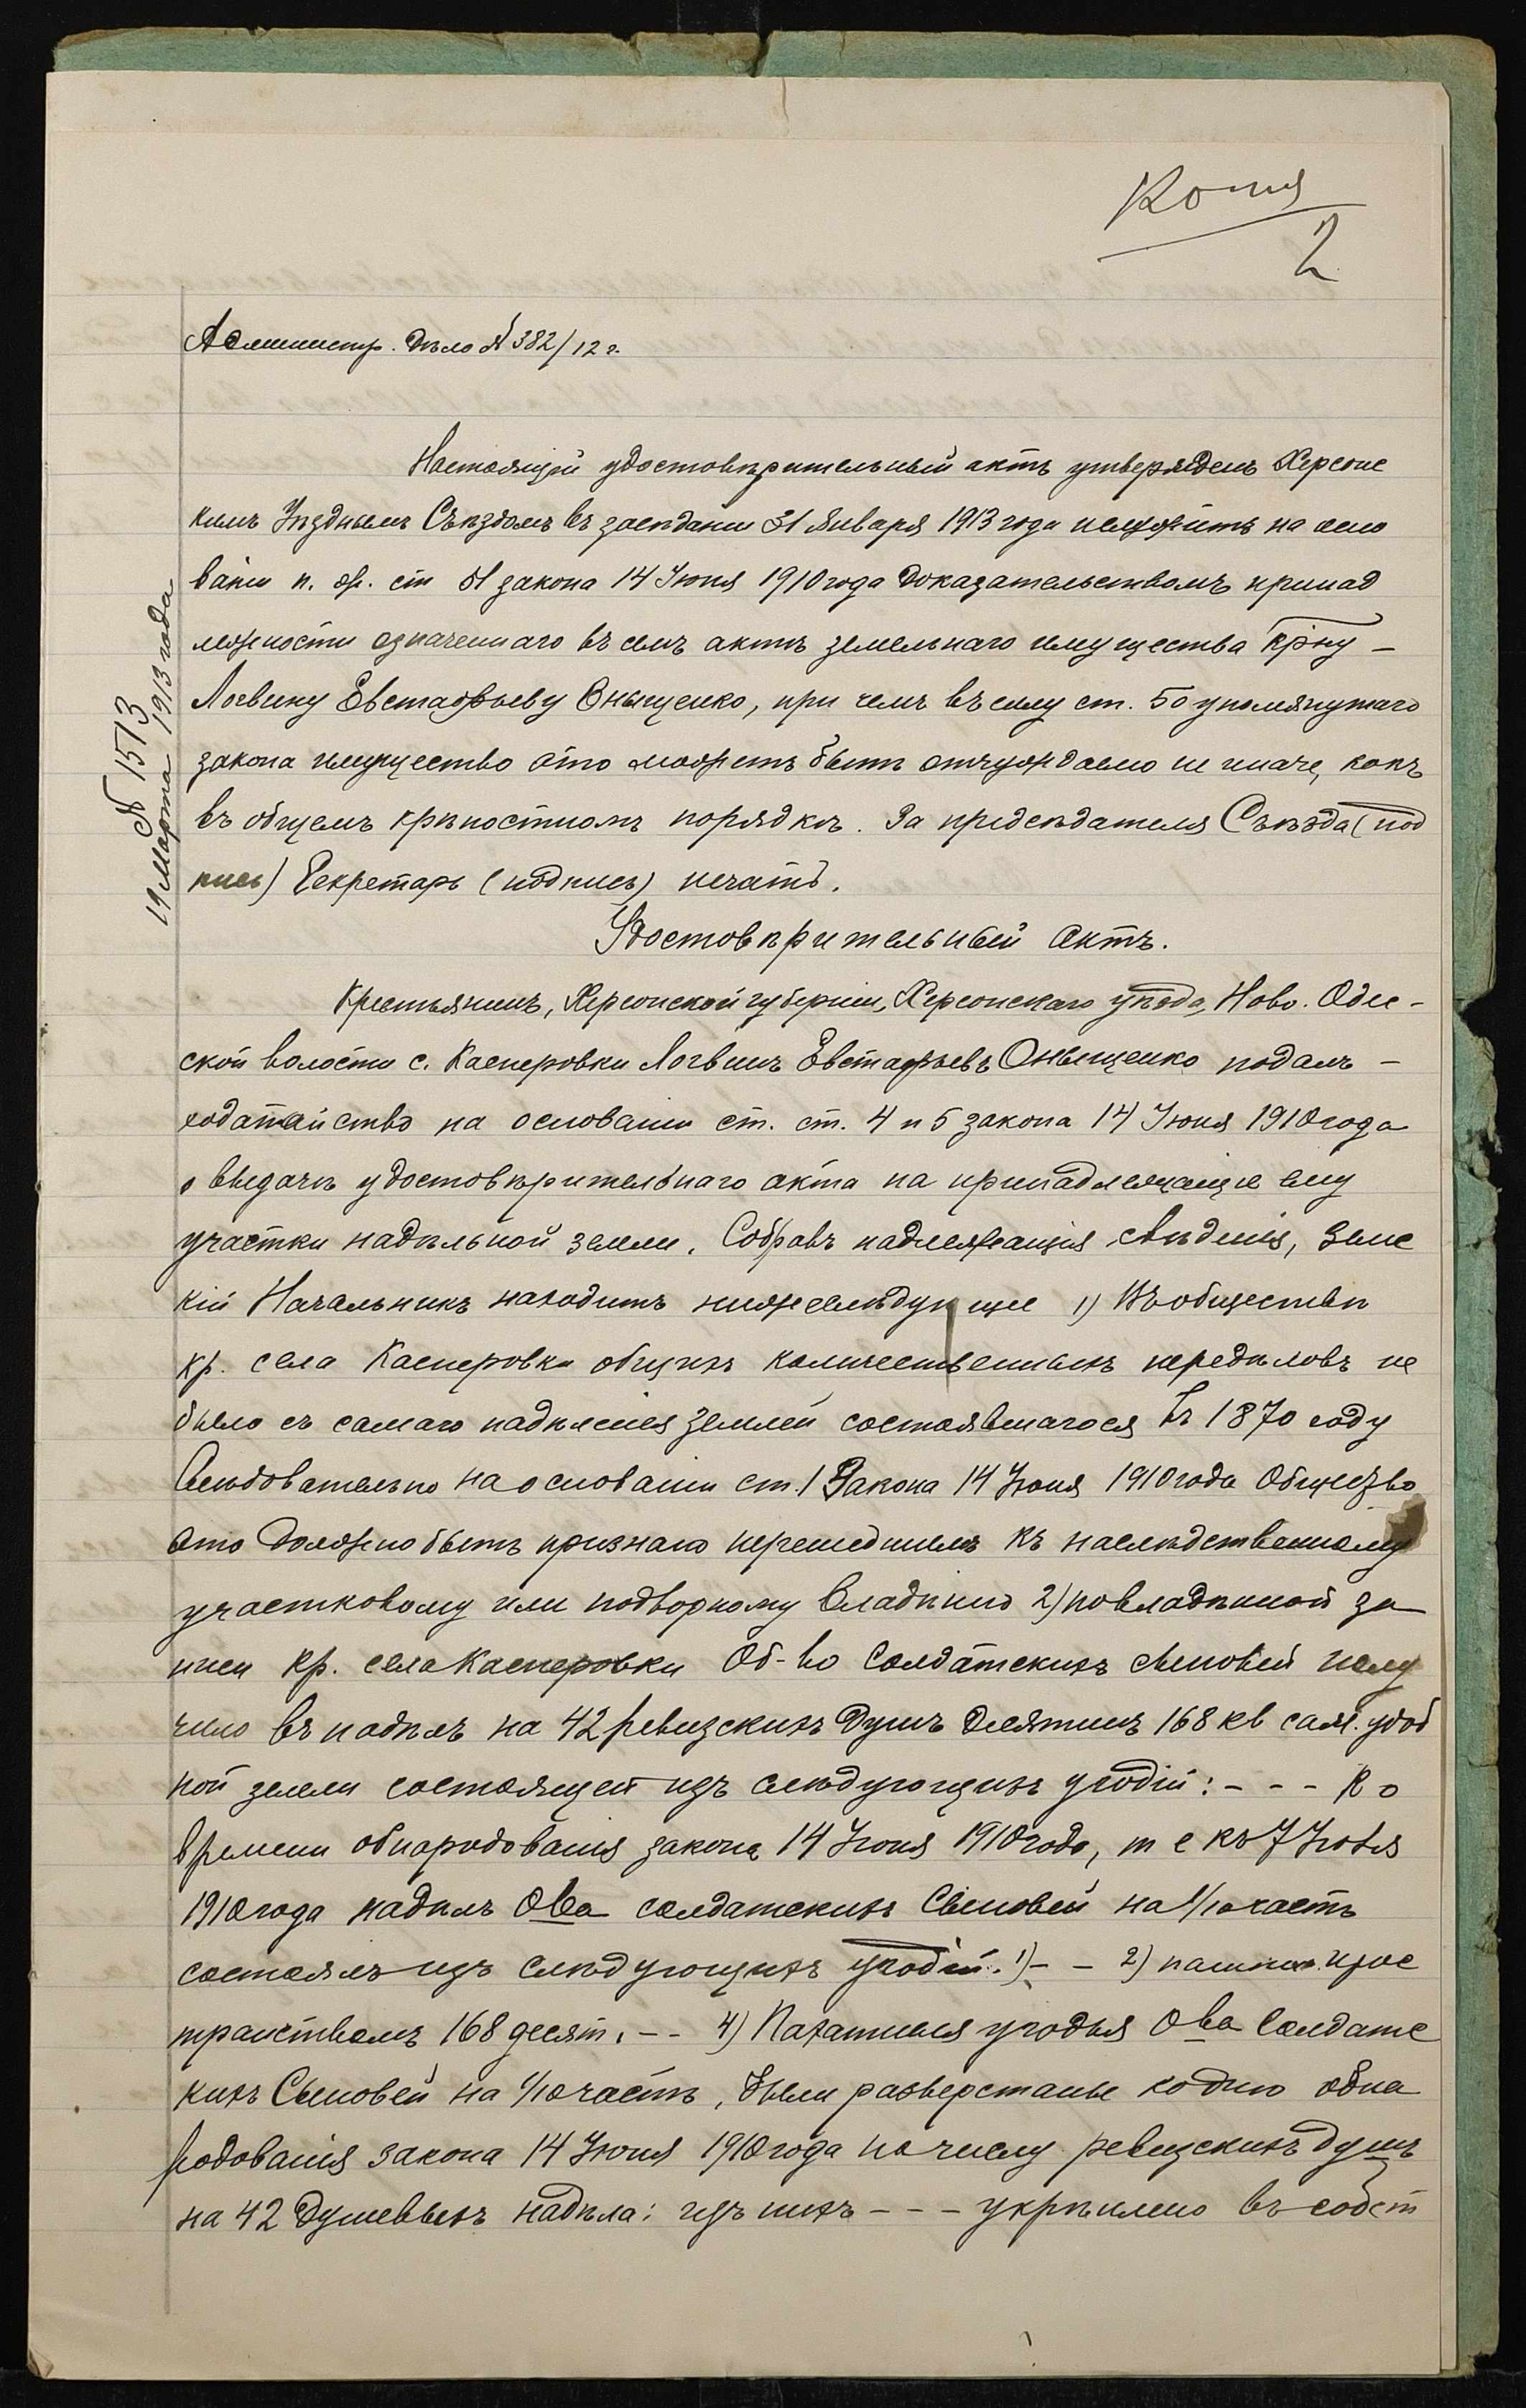 Копия
2
Администр. дѣло № 382/12 г.
№ 1513
19 Марта 1913 года
Настоящій удостовѣрительный актъ утвержденъ Херсонс
кимъ Уѣзднымъ Съѣздомъ въ засѣданіи 31 Января 1913 года и служитъ на осно
ваніи п. ж. ст 51 закона 14 Іюня 1910 года доказательствомъ принад
лежности означеннаго въ семъ актѣ земельнаго имущества кр-ну –
Логвину Евстафьеву Оныщенко, при чемъ въ силу ст. 50 упомянутаго
закона имущество это можетъ быть отчуждаемо не иначе, какъ
въ общемъ крѣпостномъ порядкѣ. За предсѣдателя Съѣзда (под
пись) Секретарь (подпись) печать.
Удостовѣрительный актъ.
Крестьянинъ, Херсонской губерніи, Херсонскаго уѣзда, Ново. Одес-
ской волости с. Касперовки Логвинъ Евстафьевъ Оныщенко подалъ –
ходатайство на основаніи ст. ст. 4 и 5 закона 14 Іюня 1910 года
о выдачѣ удостовѣрительнаго акта на принадлежащіе ему
участки надѣльной земли. Собравъ надлежащія свѣдѣнія, Земс
кій Начальникъ находитъ нижеслѣдующее 1) Въ обществѣ
кр. села Касперовки общихъ количественныхъ передѣловъ не
было съ самаго надѣленія землей состоявшагося въ 1870 году
Слѣдовательно на основаніи ст. 1 Закона 14 Іюня 1910 года Общество
это должно быть признано перешедшимъ къ наслѣдственному
участковому или подворному владѣнію 2) по владѣнной за
писи кр. села Касперовки Об-во Солдатскихъ сыновей полу
чило въ надѣлъ на 42 ревизскихъ душъ десятинъ 168 кв саж. удоб
ной земли состоящей изъ слѣдующихъ угодій: - - - Ко
времени обнародованія закона 14 Іюня 1910 года, т е къ 7 Іюля
1910 года надѣлъ О-ва солдатскихъ Сыновей на 1/10 часть
состоялъ изъ слѣдующихъ угодій. 1) – – 2) пашни прос
транствомъ 168 десят. -- 4) Пахатныя угодья О-ва Солдатс
кихъ Сыновей на 1/10 часть, были разверстаны ко дню обна
родованія закона 14 Іюня 1910 года по числу ревизскихъ душъ
на 42 душевыхъ надѣла: изъ нихъ - - - укрѣплено въ собст